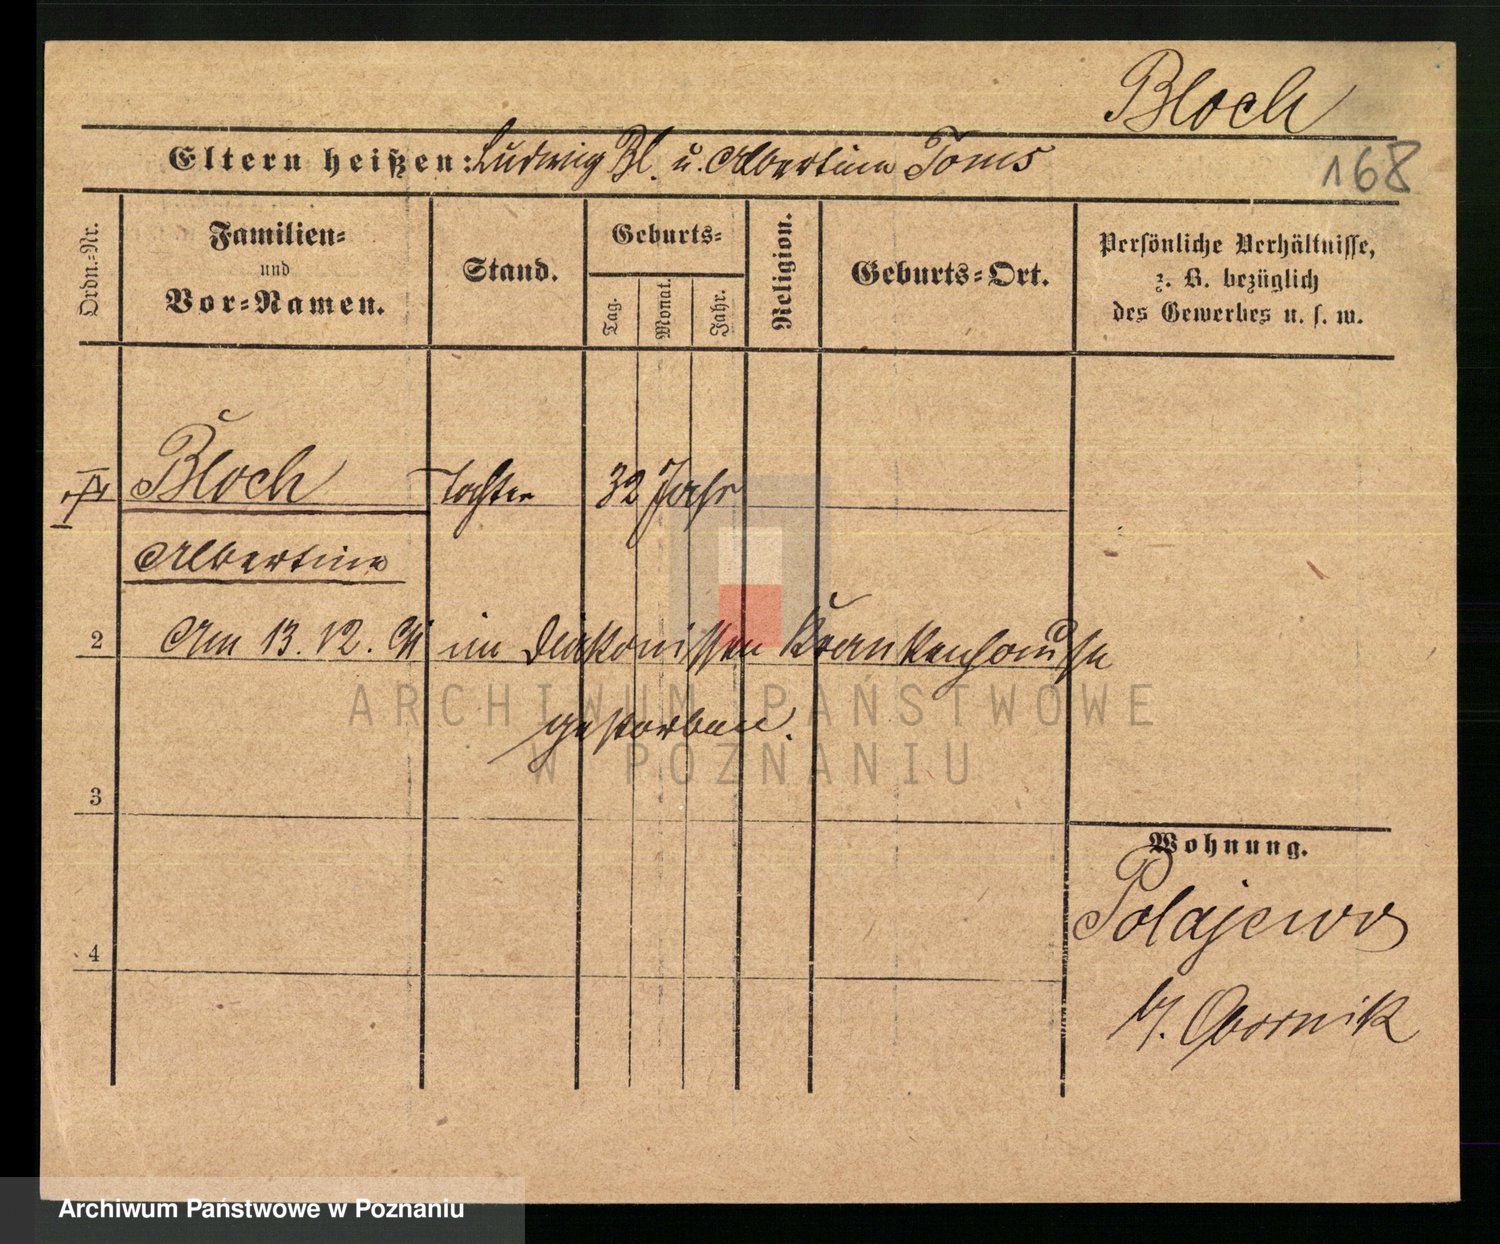 Bloch
Eltern heißen: Ludwig Bl. u. Albertina Toms
168
Ordn.-Nr.
Familien-
und
Vor-Namen.
Stand.
Geburts-
Tag.
Monat.
Jahr.
Religion.
Geburts-Ort.
Persönliche Verhältnisse,
z. B. bezüglich
des Gewerbes u. s. w.
Bloch Tochter 32 Jahr
Albertine
2 Am 13. 12. im Diakonissen Krankenhause
gestorben.
ARCHIWUM PAŃSTWOWE
W POZNANIU
3
Wohnung.
Polajewo
4
b/. Obornik
Archiwum Państwowe w Poznaniu